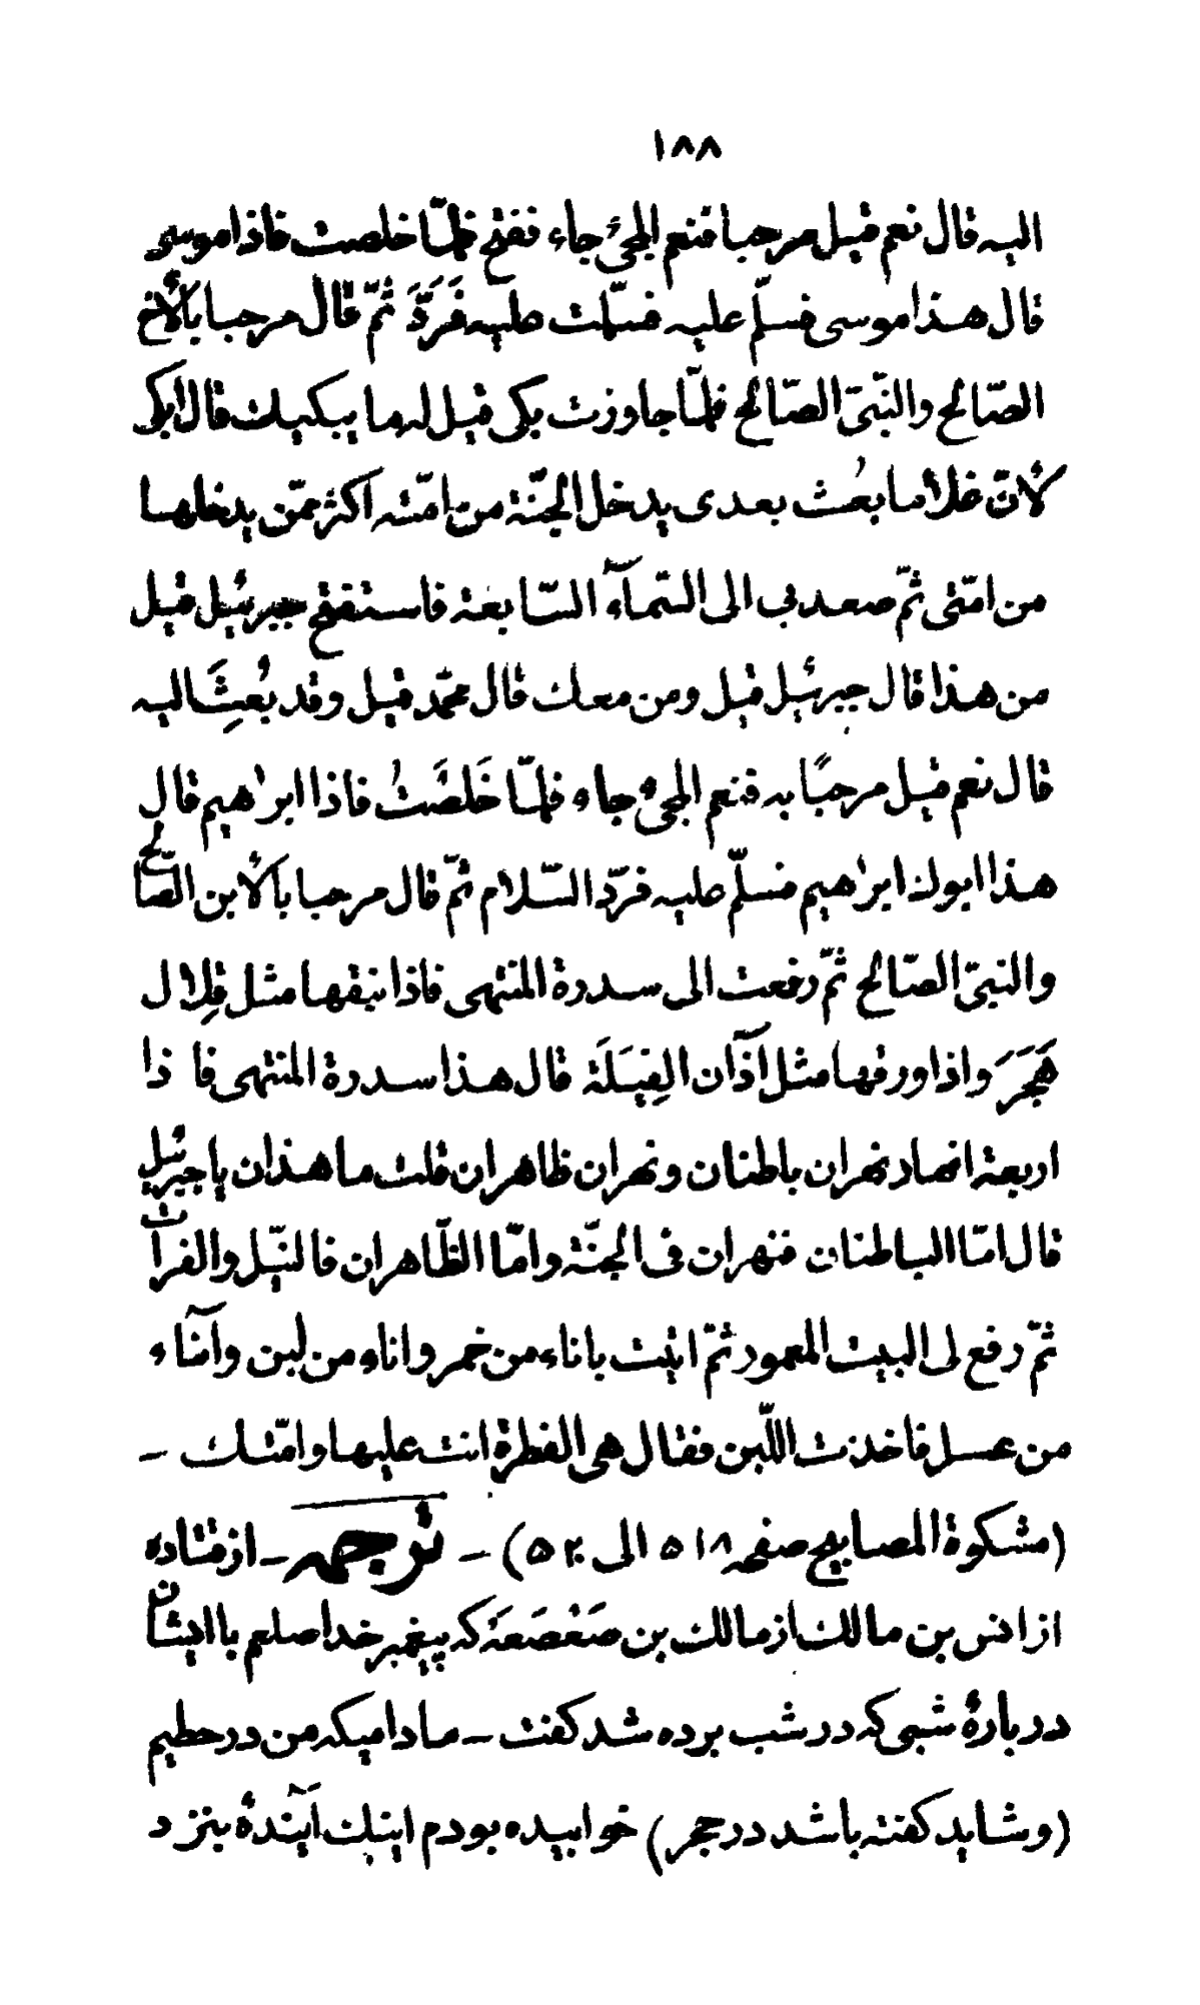 ۱۸۸
الیه قال نعم قیل مرحبا فنعم المجیُ جاء ففتح فلمّا خلصت فاذا موسی
قال هذا موسی فسلّم علیه فسلّمت علیه فَرَدَّ ثمّ قال مرحبا بالأخ
الصّالح والنّبیّ الصّالح فلمّا جاوزت بکی قیل له ما یبکیك قال ابکی
لأنّ غلاما بُعث بعدی یدخل الجنّة من امّته اکثر ممّن یدخلها
من امّتی ثمّ صعد بی الی السّمآء السّابعة فاستفتح جبرئیل قیل
من هذا قال جبرئیل قیل ومن معك قال محمّد قیل وقد بُعِثَ الیه
قال نعم قیل مرحبًا به فنعم المجیُ جاء فلمّا خَلَصَتُ فاذا ابراهیم قال
هذا ابوك ابراهیم فسلّم علیه فردّ السّلام ثمّ قال مرحبا بالأبن الصّالح
والنبیّ الصّالح ثمّ رفعت الی سدرة المنتهی فاذا نبقها مثل قِلال
هَجَرَ واذا ورقها مثل آذآن الفِیَلَة قال هذا سدرة المنتهی فاذا
اربعة انهار نهران باطنان ونهران ظاهران قلت ما هذان یا جبرئیل
قال امّا الباطنان فنهران فی الجنّة وامّا الظّاهران فالنیّل والفرات
ثمّ رفع لی البیت المعمور ثمّ اتیت باناء من خمر واناء من لبن وآناء
من عسل فاخذت اللّبن فقال هی الفطرة انت علیها وامّتك –
(مشکوة المصابیح صفحه ۵۱۸ الی ۵۲۰) – ترجمه – از قتاده
از انس بن مالك از مالك بن صَعْصَعَة که پیغمبر خدا صلعم با ایشان
دربارهٔ شبی که در شب برده شد کفت – مادامیکه من در حطیم
(و شاید کفته باشد در حجر) خوابیده بودم اینك آیندهٔ بنزد